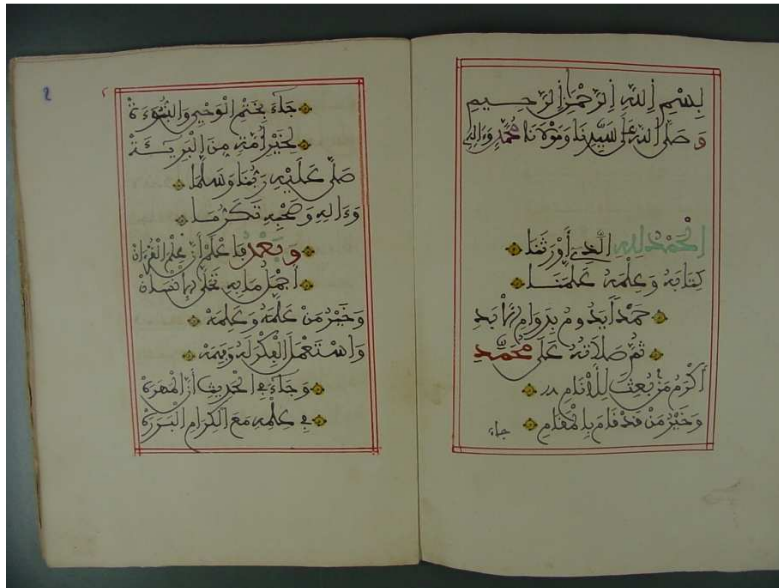 بِسْمِ اِللَّهِ اِلرَّحْمَٰنِ اِلرَّحِيمِ
وَصَلَّى اللَّهُ عَلَى سَيِّدِنَا وَمَوْلَانَا مُحَمَّدٍ وَءَالِهِ
اَلْحَمْدُ لِلهِ الَّذِے أَوْرَثَنَا
كِتَابَهُ وَعِلْمَهُ عَلَّمَنَا
حَمْداً يَدُومُ بِدَوَامِ الْأَبَدِ
ثُمَّ صَلَاتُهُ عَلَى مُحَمَّدِ
أَكْرَمِ مَنْ بُعِثَ لِلْأَنَامِ
وَخَيْرِ مَنْ قَدْ قَامَ بِالْمَقَامِ
جاء
2
جَاءَ بِخَتْمِ الْوَحْيِ وَالنُّبُوءَةْ
لِخَيْرِ أُمَّةٍ مِنَ الْبَرِيَّةْ
صَلَّى عَلَيْهِ رَبُّنَا وَسَلَّمَا
وَءَالِهِ وَصَحْبِهِ تَكَرُّمَا
وَبَعْدُ فَاعْلَمْ أَنَّ عِلْمَ الْقُرْءَانْ
أَجْمَلُ مَا بِهِ تَحَلَّى الْإِنْسَانْ
وَخَيْرُ مَنْ عَلَّمَهُ وَعَلِمَهْ
وَاسْتَعْمَلَ الْفِكْرَ لَهُ وَفَهِمَهْ
وَجَاءَ فِي الْحَدِيثِ أَنَّ الْمَهَرَةْ
فِي عِلْمِهِ مَعَ الْكِرَامِ الْبَرَرَةْ